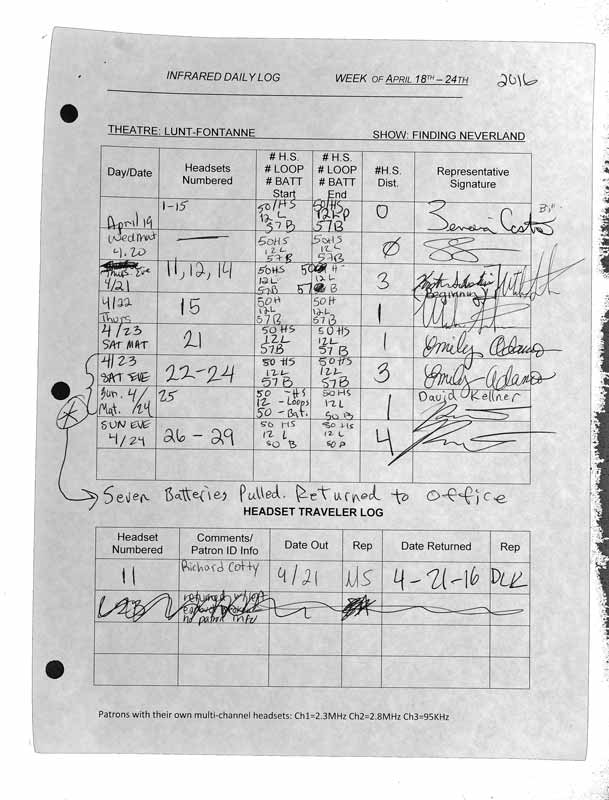 INFRARED DAILY LOG WEEK OF APRIL 18TH – 24TH 2016
THEATRE: LUNT-FONTANNE SHOW: FINDING NEVERLAND
Day/Date Headsets Numbered # H.S. # LOOP # BATT Start # H.S. # LOOP # BATT End #H.S. Dist. Representative Signature
April 19 1-15 50/HS 12 L 57B 50/HS 12 LP 57B 0
Wed Mat 4.20 — 50HS 12L 57B 50HS 12L 57B 0
Thurs Eve 4/21 11, 12, 14 50HS 12L 57B 50 H 12L 57 B 3 beginning
4/22 Thurs 15 50H 12L 57B 50H 12L 57B 1
4/23 SAT MAT 21 50 HS 12L 57B 50 HS 12L 57B 1 Emily Adams
4/23 SAT EVE 22-24 50 HS 12L 57B 50 HS 12L 57B 3 Emily Adams
Sun. 4/24 Mat. 25 50 -HS 12 -Loops 50 -Bat. 50HS 12L 50 B 1 David Kellner
SUN EVE 4/24 26-29 50 HS 12 L 50 B 50 HS 12 L 50 B 4
Seven Batteries Pulled. Returned to office
HEADSET TRAVELER LOG
Headset Numbered Comments/ Patron ID Info Date Out Rep Date Returned Rep
11 Richard Cotty 4/21 MS 4-21-16 DLK
no patron info
Patrons with their own multi-channel headsets: Ch1=2.3MHz Ch2=2.8MHz Ch3=95KHz